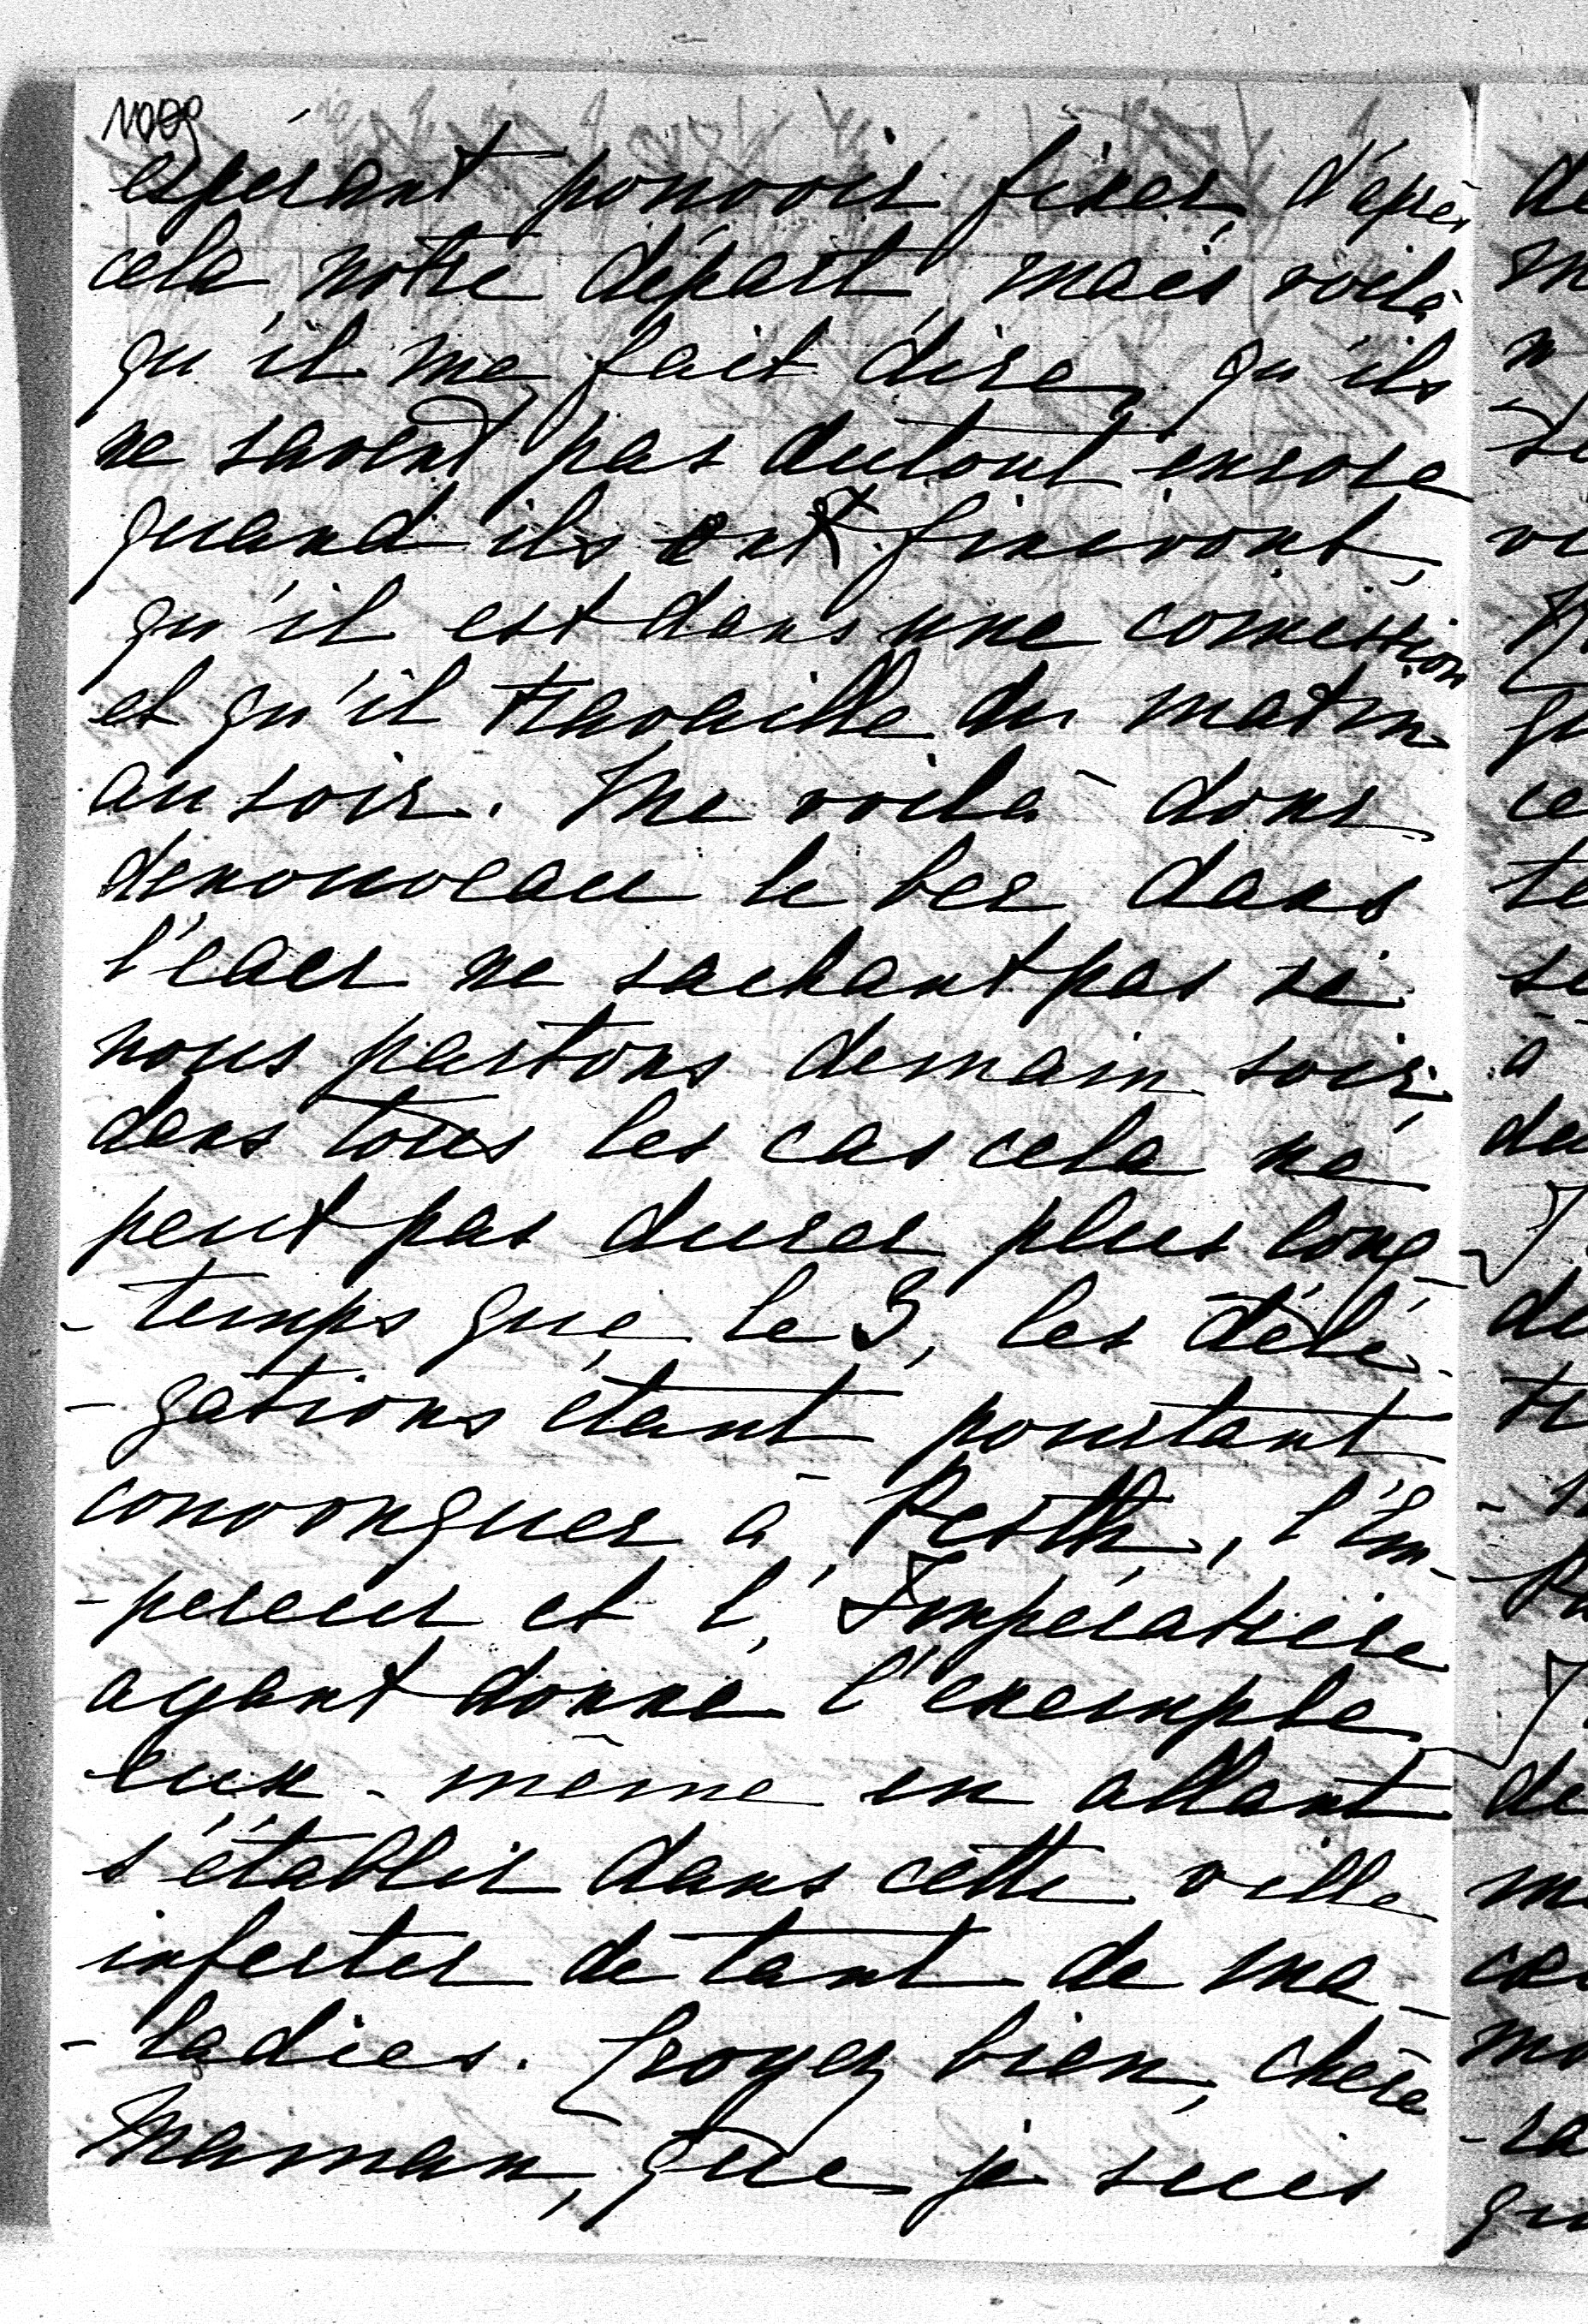 1009
espérant pouvoir fixer d'après
cela notre départ, mais voilà
qu'il me fait dire, qu'ils
ne savent pas dutout encore
quand ils ont finiront,
qu'il est dans une comission
et qu'il travaille du matin
au soir. Me voilà donc
denouveau le bec dans
l'eaer ne sachant pas si
nous partons demain soir,
dans tous les cas cela ne
peut pas durer plus long-
-temps que le 3, les délé-
-gations étant pourtant
convonquer à Pesth, l'Em-
-pereur et l'Impératrice
ayant donne l'exemple
eux-même en allant
s'établir dans cette ville
infecter de tant de ma-
-ladies. Croyez bien, chère
Maman, que je suis